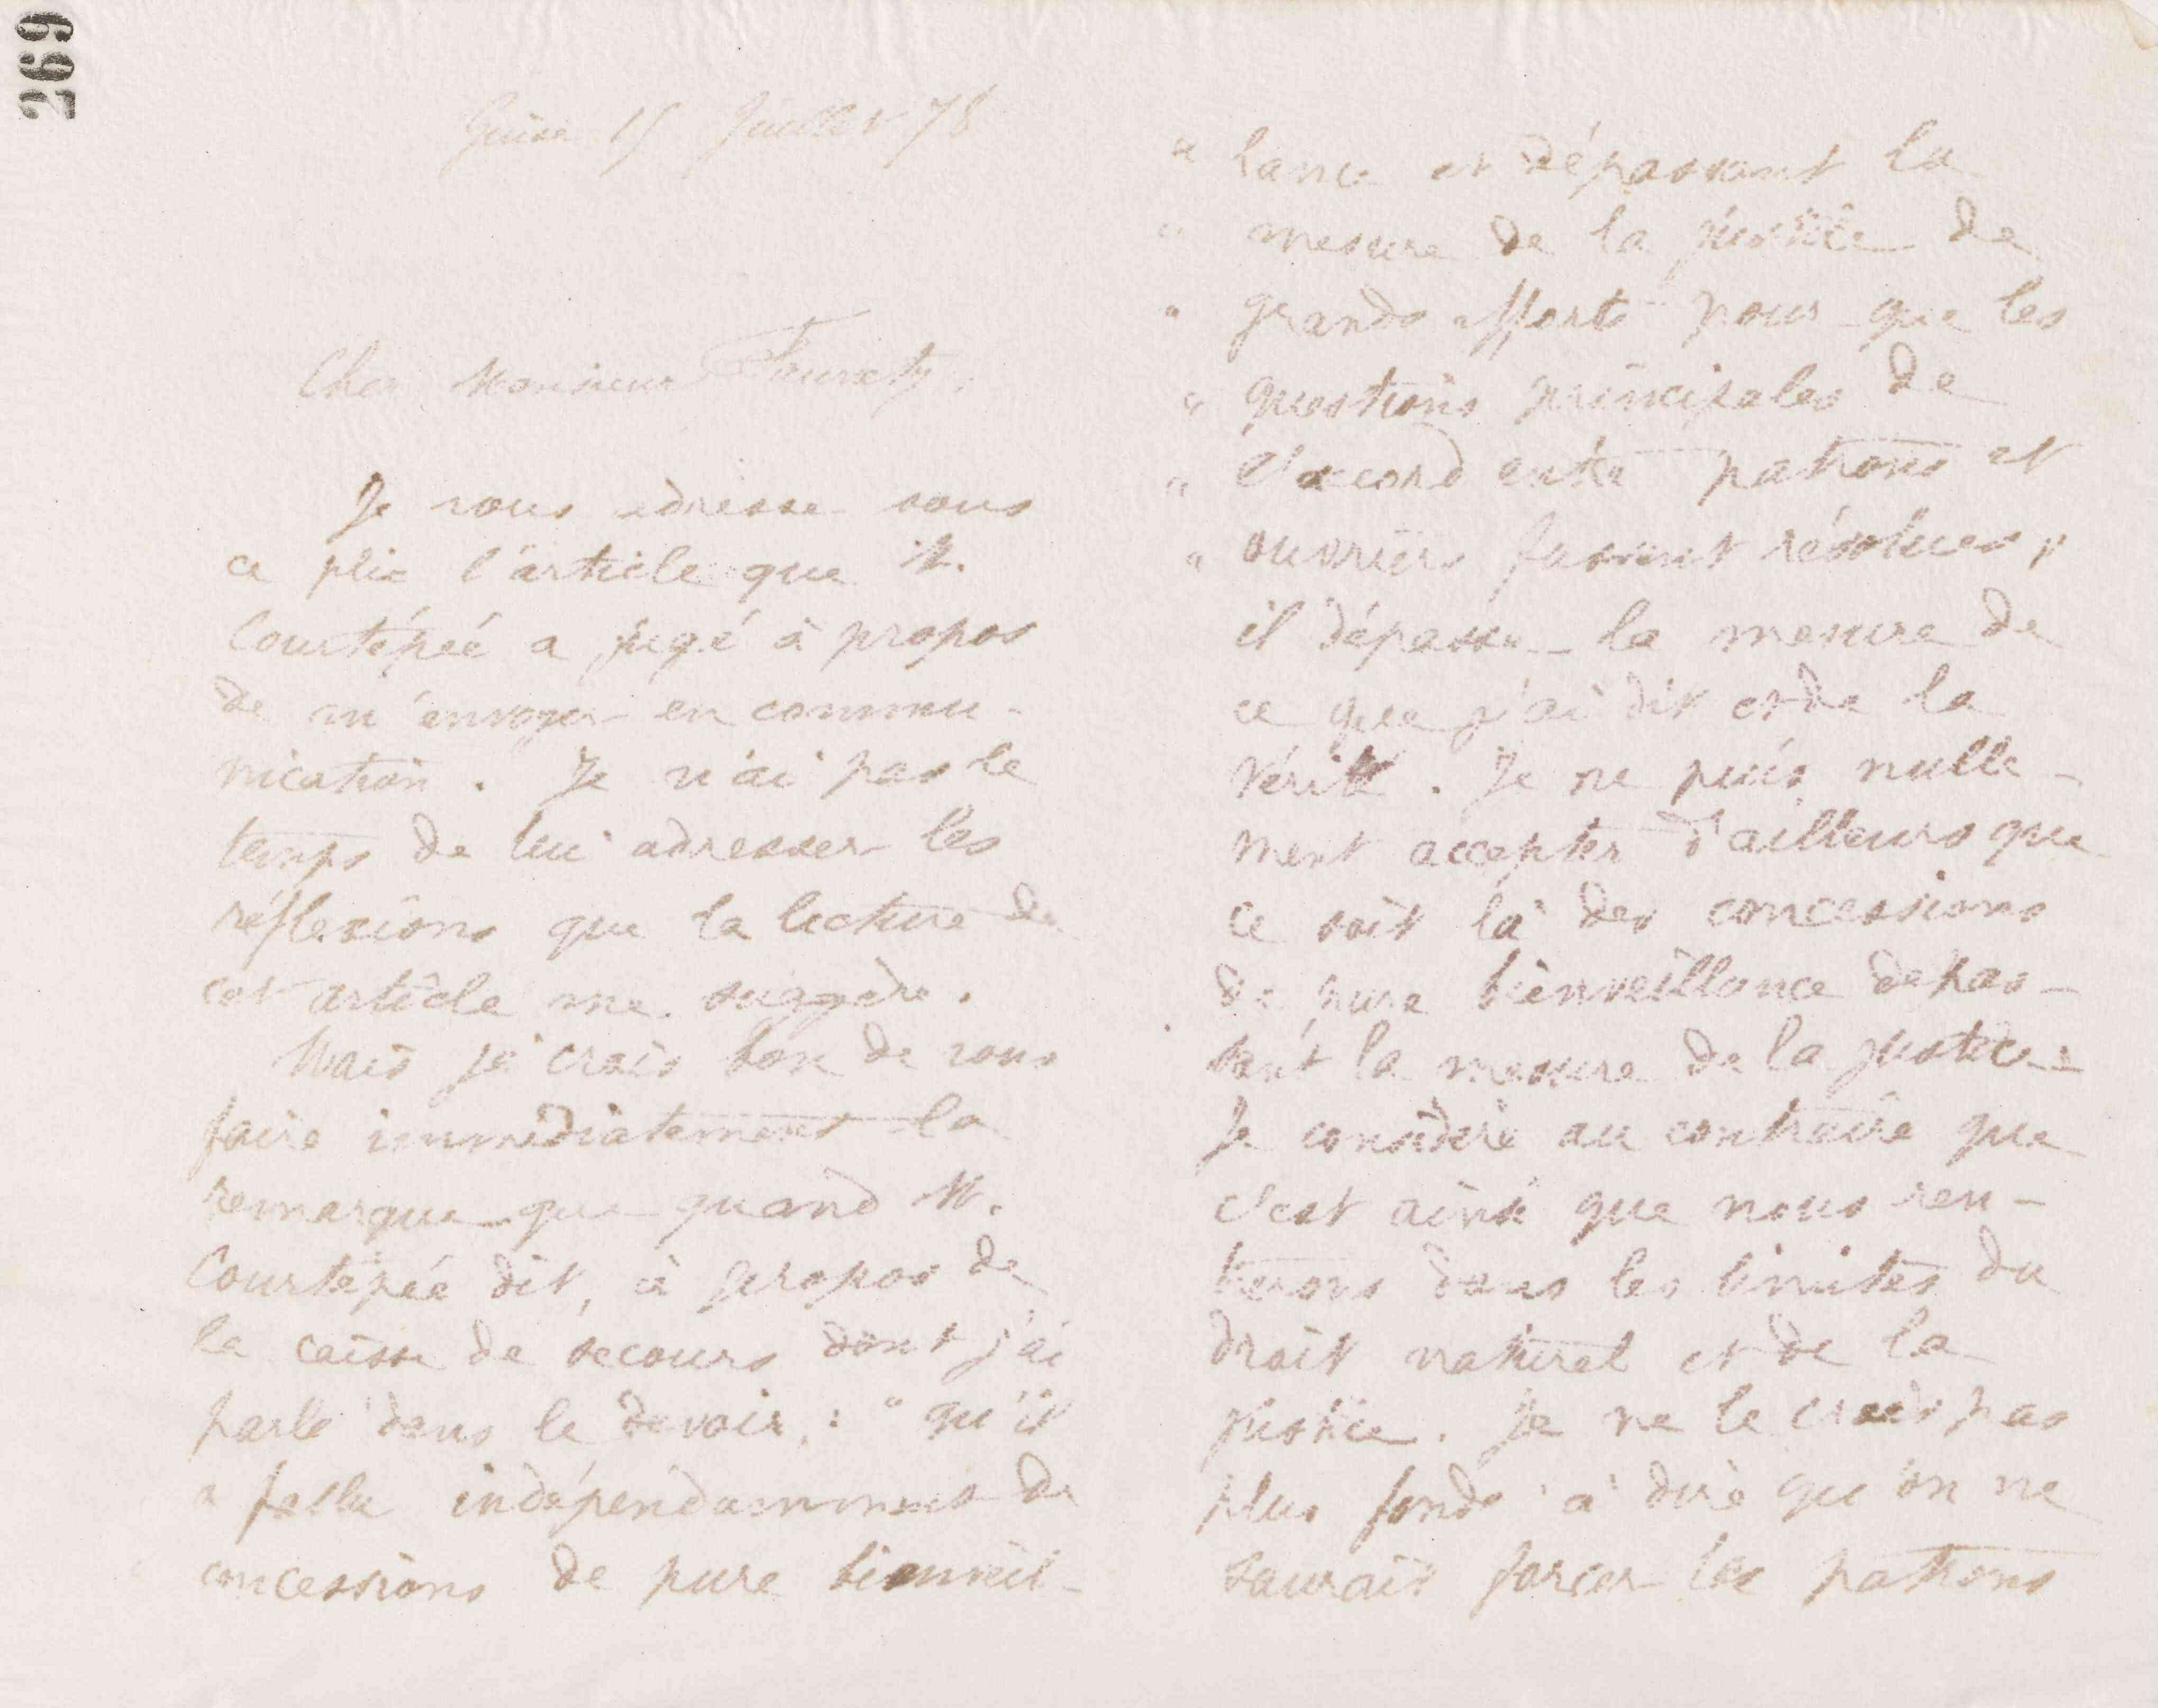 269
Guise 15 Juillet 78
Cher Monsieur Fauvety,
Je vous adresse sous
ce plie l'article que M.
Courtépée a jugé à propos
de m'envoyer en commu-
nication. Je n'ai pas le
temps de lui adresser les
réflexions que la lecture de
cet article me suggère.
Mais je crois bon de vous
faire immédiatement la
remarque que quand M.
Courtépée dit, à propos de
la caisse de secours dont j'ai
parlé dans le devoir, : " qu'il
" fallu indépendamment de
" concessions de pure bienveil-
" lance et dépassant la
" mesure de la justice de
" grands efforts pour que les
" questions principales de
" l'accord entre patrons et
" ouvriers fussent résolues, "
il dépasse la mesure de
ce que j'ai dit et de la
vérité. Je ne puis nulle-
ment accepter d'ailleurs que
ce soit là des concessions
de pure bienveillance dépas-
sant la mesure de la justice.
Je considère au contraire que
c'est ainsi que nous ren-
trerons dans les limites du
droit naturel et de la
justice. Je ne le crois pas
plus fondé à dire qu'on ne
saurait forcer les patrons